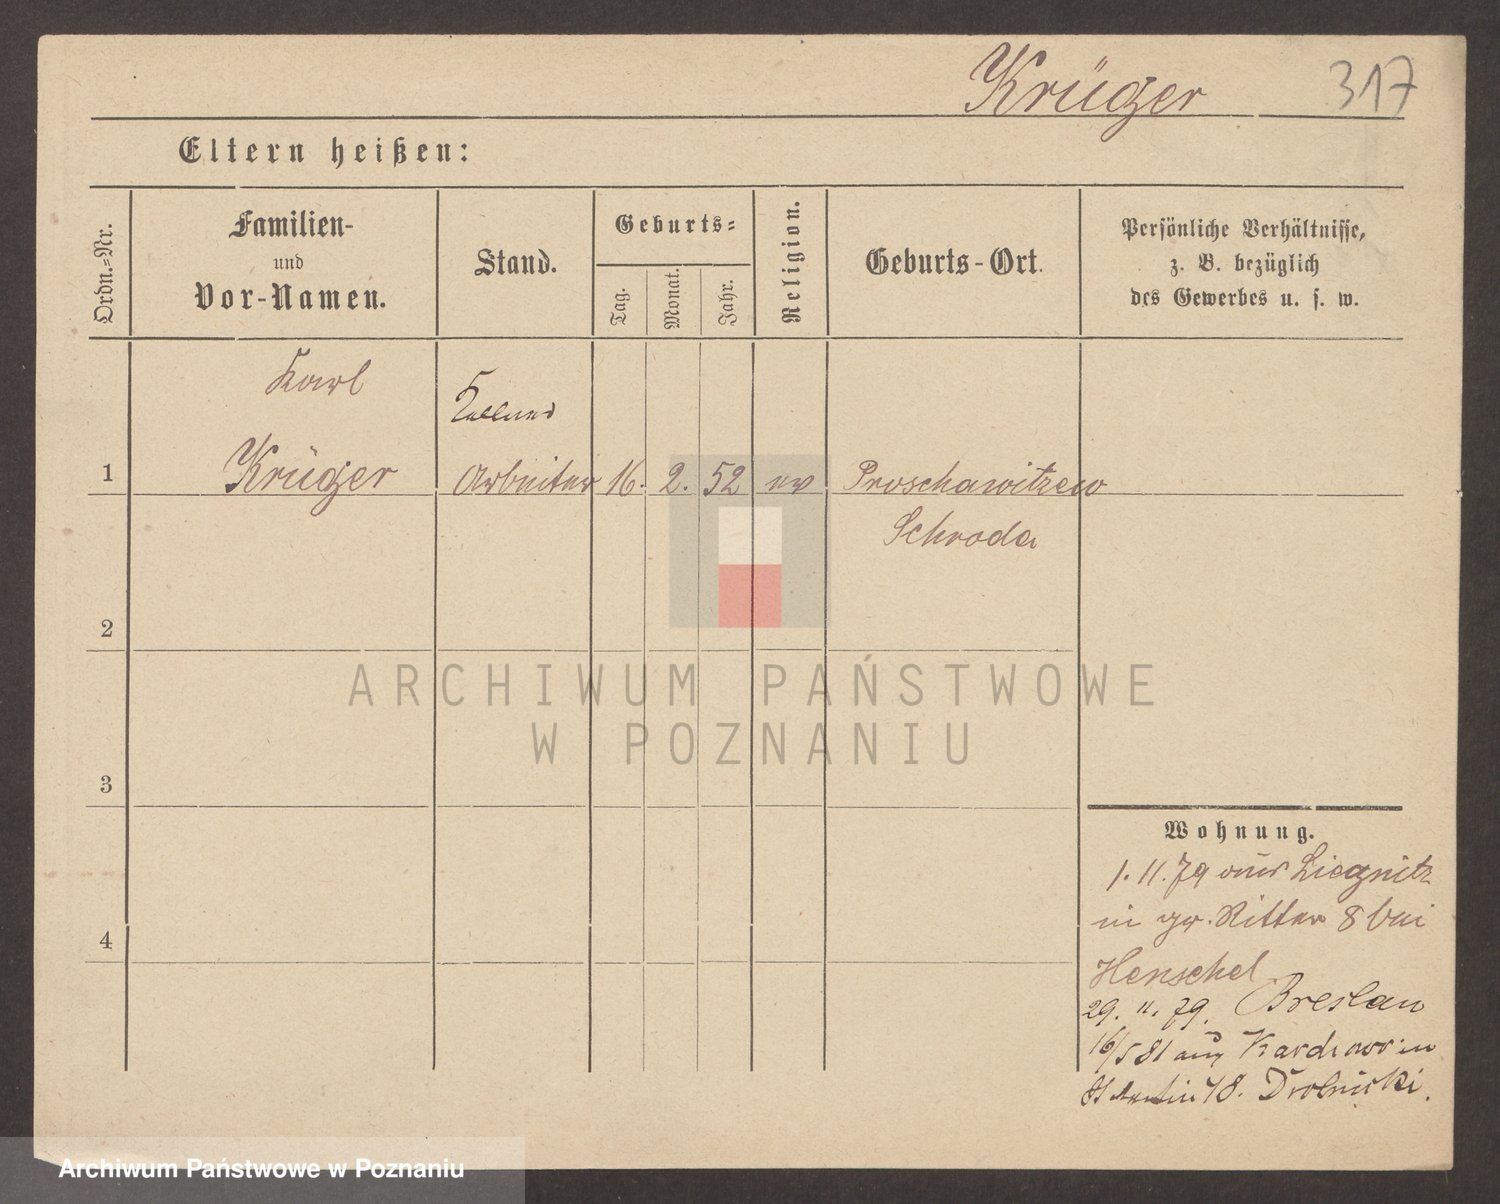 Krüger 317
Eltern heißen:
Ordn.-Nr.
Familien-
und
Vor-Namen.
Stand.
Geburts-
Tag.
Monat.
Jahr.
Religion.
Geburts-Ort.
Persönliche Verhältnisse,
z. B. bezüglich
des Gewerbes u. s. w.
Karl
Kellner
1 Krüger Arbeiter 16. 2. 52 ev Proschawitzew
Schroda
2
3
4
Wohnung.
1.11.79 aus Liegnitz
in gr. Ritter 8 bei
Henschel
29. 11. 79. Breslau
16/5 81 aus in
St Martin 48. Drobnicki.
ARCHIWUM PAŃSTWOWE
W POZNANIU
Archiwum Państwowe w Poznaniu